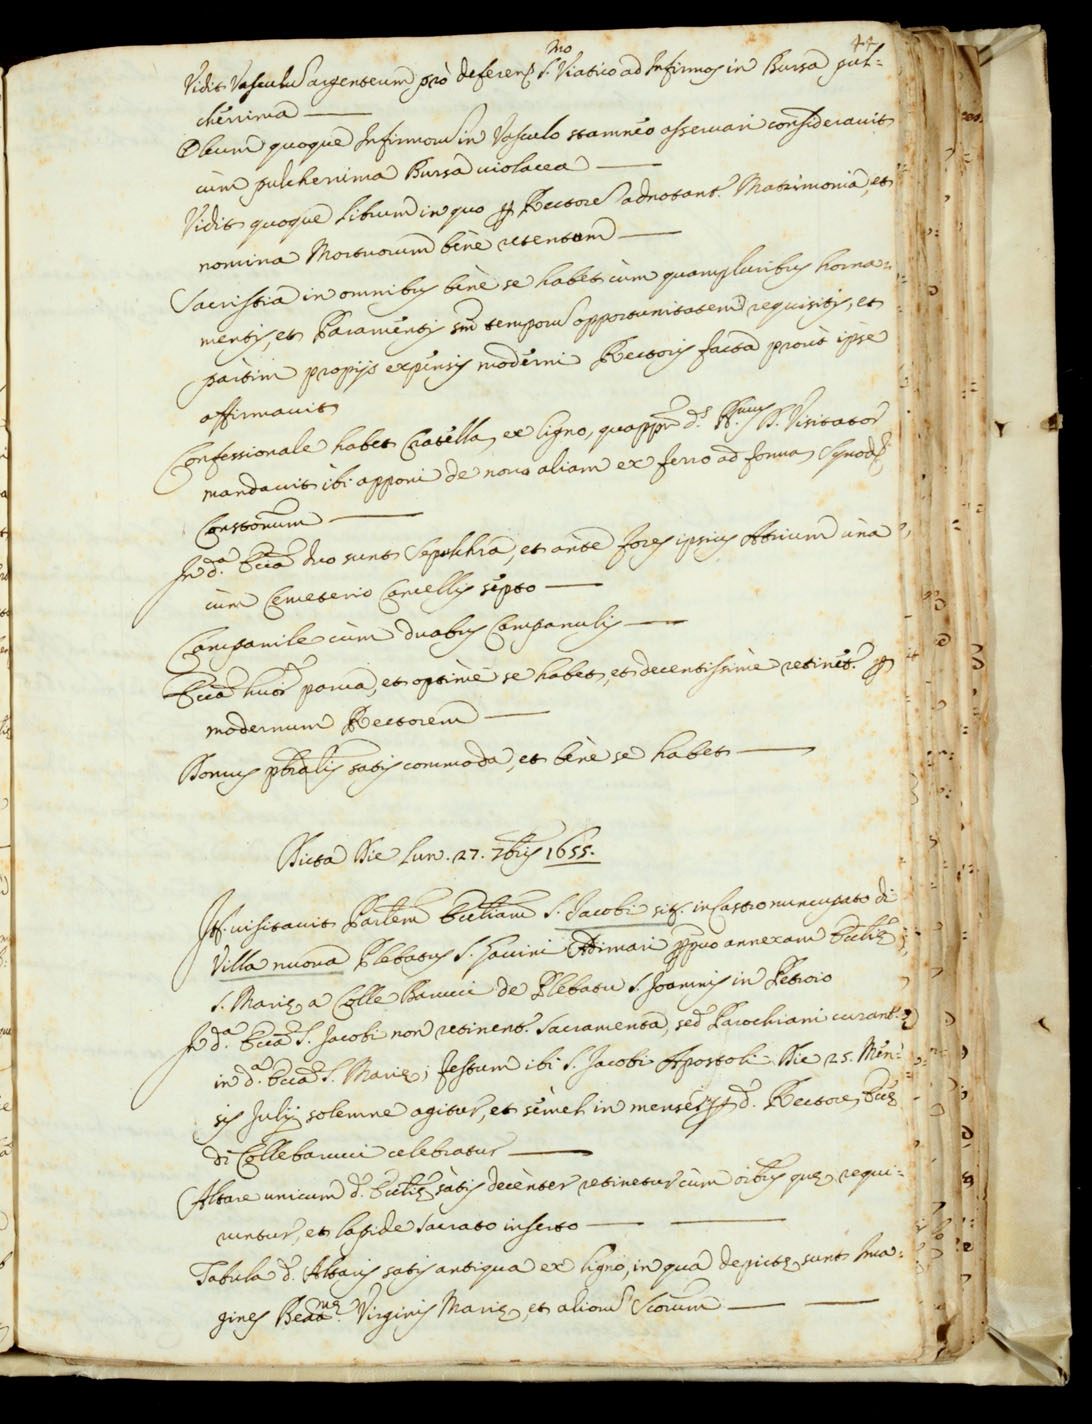 44
Vidit Vasculũ argenteum prò deferenđ S.mo Viatico ad Infirmos in Bursa pul-
cherrima
Oleum quoque Infirmorũ in Vasculo stamneo asservari consideravit
cùm pulcherrima Bursa violacea
Vidit quoque librum in quo ꝑ Rectores adnotant.r Matrimonia, et
nomina Mortuorum bènè retentum
Sacristia in omnibus bène se habet cùm quampluribus horna-
mentis, et Paramentis sm̃ temporũ opportunitatem requisitis, et
partim proprijs expensis moderni Rectoris facta proùt ipse
affirmavit
Confessionale habet Cratella ex ligno, quapp.r d.s R.mus D. Visitator
mandavit ibi apponi de novo aliam ex ferro ad forma Synod.
Constonum
In d.a Eccia duo sunt Sepulchra, et ànte fores ipsius Atrium ùna
cùm Cemeterio Cancellis septo
Campanile cùm duabus Campanulis
Eccia huiõi parva, et optimè se habet, et decentissime retinet.r ꝑ
modernum Rectorem
Domus pb̃ralis satis commoda, et bène se habet
Dicta Die Lun. 27. 7bris 1655.
It. visitavit Parlem Eccliam S. Jacobi sit. in Castro nuncupato di
Villa nuova Plebatus S. Gavini Adimari ppuo annexam Eccliæ
S. Mariæ a Colle Barucci de Plebatu S. Joannis in Petroio
In d.a Eccia S. Jacobi non retinent.r Sacramenta, sed Parochiani curant.r
in d.a Eccia S. Mariæ; festum ibi S. Jacobi Apostoli Die 25. Men-
sis Julij solemne agitur, et sèmel in mense ꝑ d. Rectore Ecciæ
di Collebarucci celebratur
Altare unicum d. Eccliæ sàtis decènter retinetur cùm oibus quæ requi-
runtur, et lapide sacrato inserto
Tabula d. Altaris satis antiqua ex ligno, in qua depictæ sunt Ima-
gines Beatmæ Virginis Mariæ, et aliorũ Sctorum